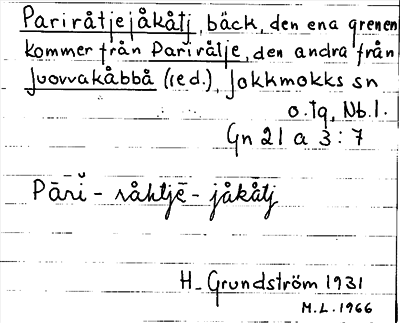 Pariråtjejåkåtj, bäck, den ena grenen
kommer från Pariråtje, den andra från
Juovvakåbbå (ied.), Jokkmokks sn
o. tg, Nb. l.
Gn 21 a 3:7
Pārĭ̮ - råhtjē - jåkåtj
H. Grundström 1931
M.L. 1966